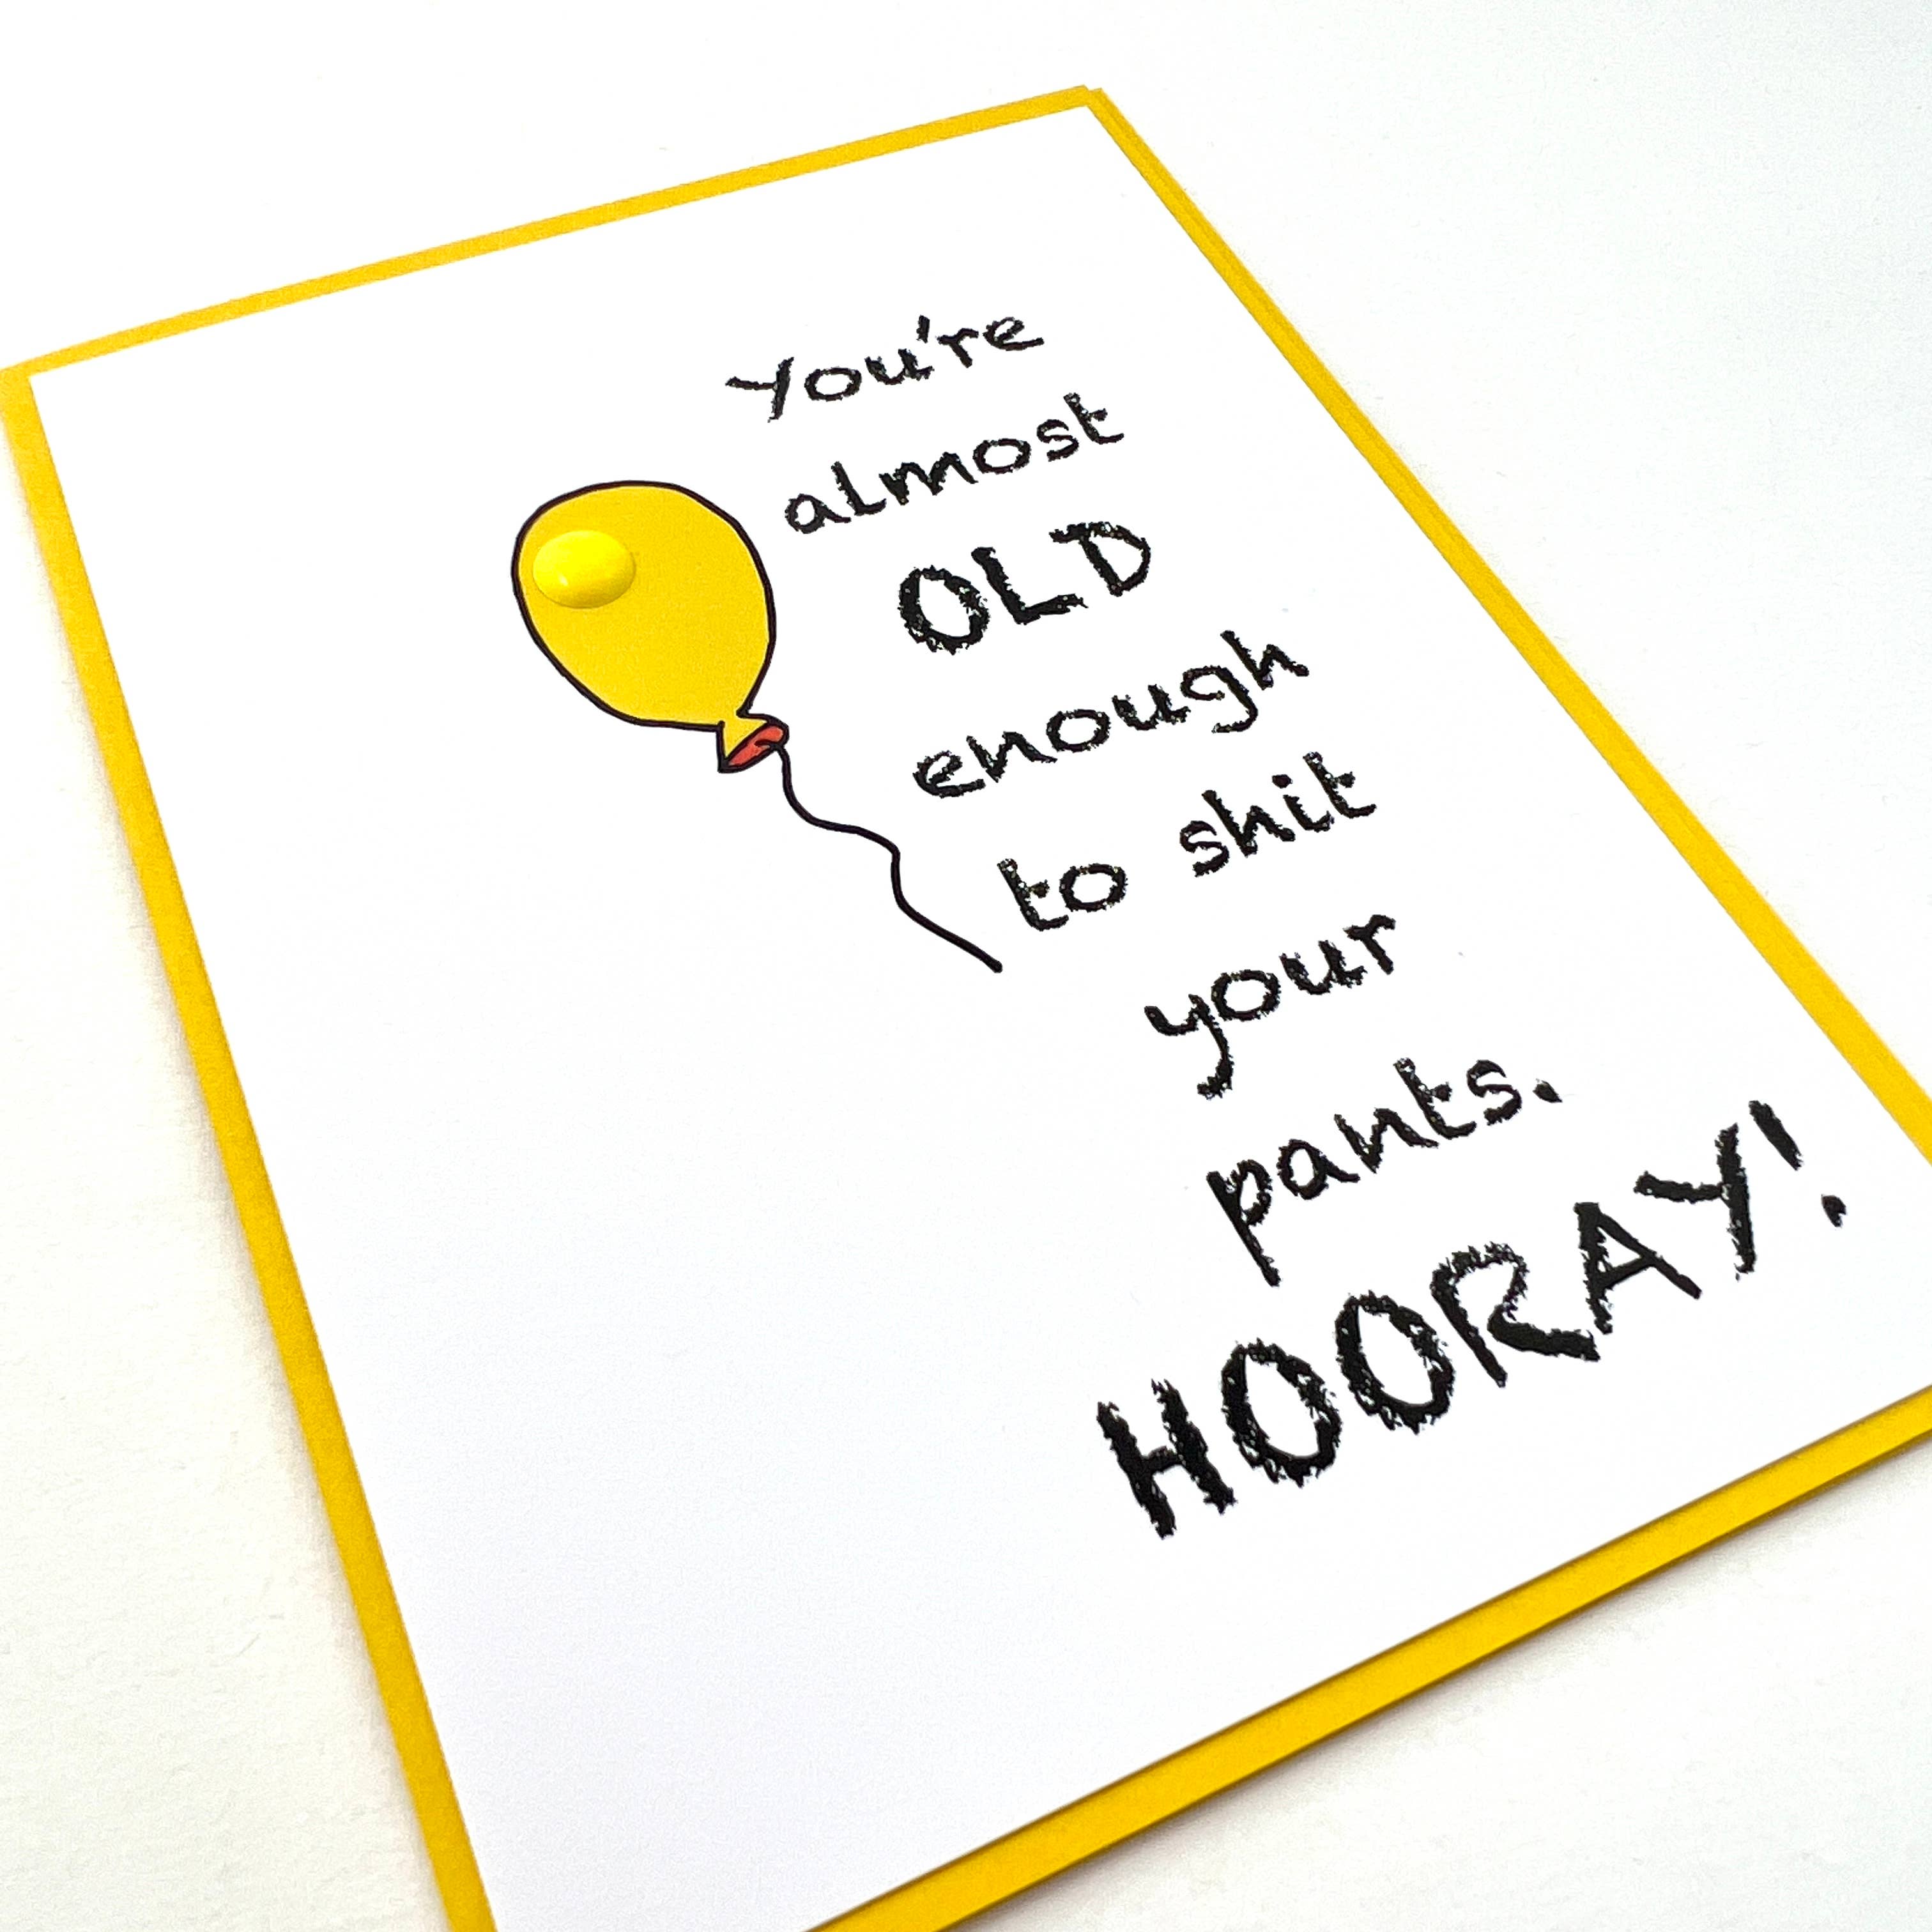 You're
almost
OLD
enough
to shit
your
pants.
HOORAY!